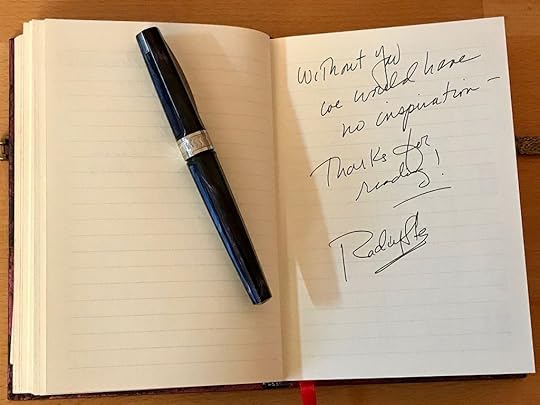 Without you
we would have
no inspiration –
Thanks for
reading!